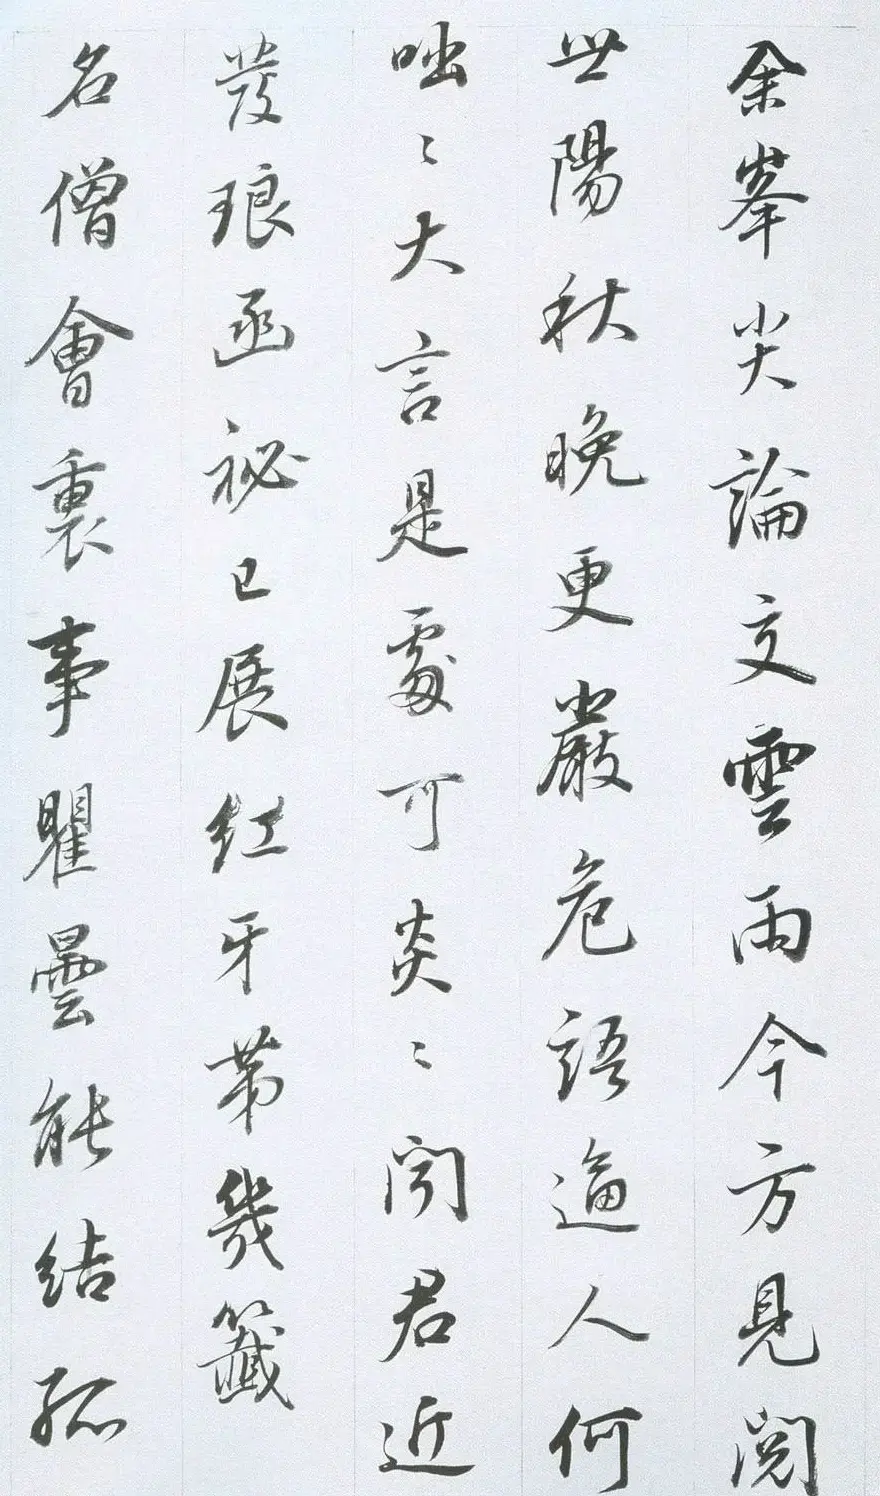 余峯尖論文雲雨今方見閲
世陽秋晚更嚴危語逼人何
咄〻大言是處可炎〻聞君近
發琅函祕已展紅牙苐幾籤
名僧會裏事瞿曇能結孤